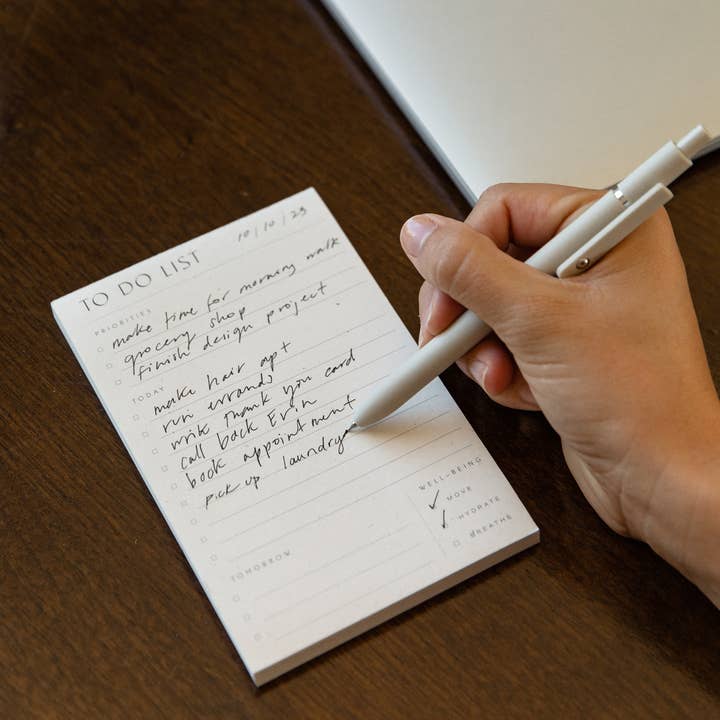 TO DO LIST
10/10/23
PRIORITIES
make time for morning walk
grocery shop
finish design project
TODAY
make hair apt
run errands
write thank you card
call back Erin
book appointment
pick up laundry
WELL-BEING
MOVE
HYDRATE
BREATHE
TOMORROW